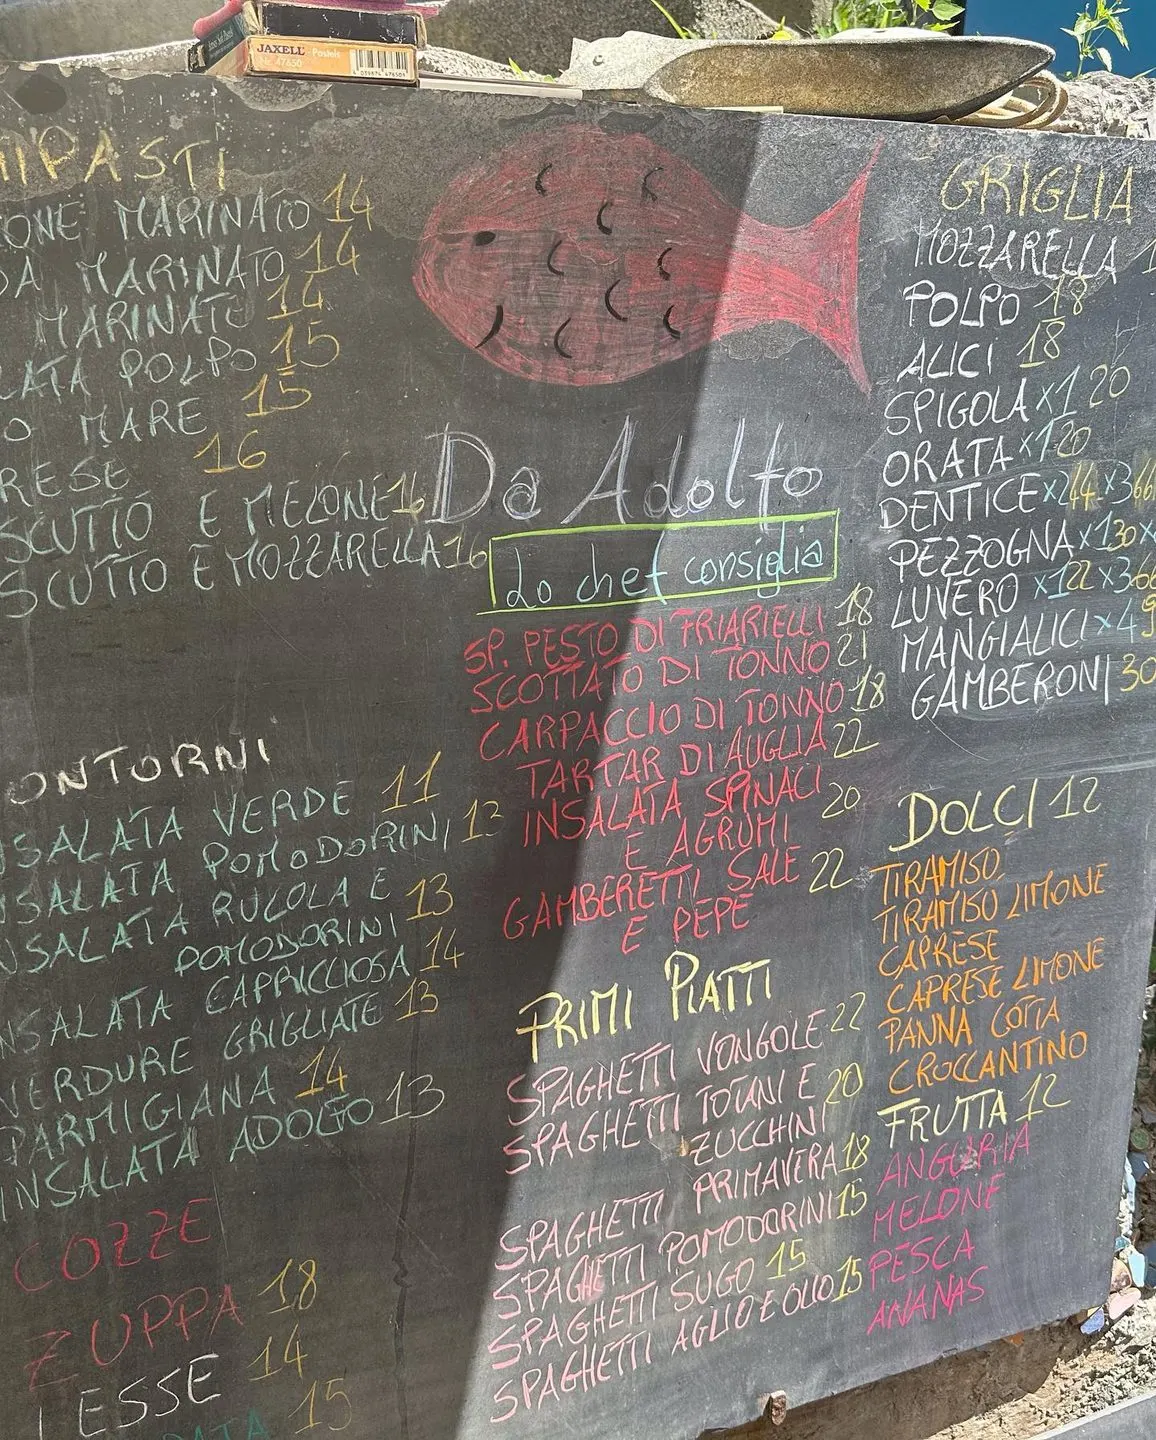 JAXELL - Pastels
Nr. 47650
4 039874 476504
IPASTI
ONE MARINATO 14
DA MARINATO 14
MARINATO 14
LATA POLPO 15
O MARE 15
RESE 16
SCUTTO E MELONE 16
SCUTTO E MOZZARELLA 16
ONTORNI
NSALATA VERDE 11
NSALATA POMODORINI 13
NSALATA RUCOLA E
POMODORINI 13
NSALATA CAPRICCIOSA 14
VERDURE GRIGLIATE 13
PARMIGIANA 14
INSALATA ADOLFO 13
COZZE
ZUPPA 18
LESSE 14
ATA 15
Da Adolfo
Lo chef consiglia
SP. PESTO DI FRIARIELLI 18
SCOTTATO DI TONNO 21
CARPACCIO DI TONNO 18
TARTAR DI AUGLIA 22
INSALATA SPINACI
E AGRUMI 20
GAMBERETTI SALE
E PEPE 22
PRIMI PIATTI
SPAGHETTI VONGOLE 22
SPAGHETTI TOTANI E
ZUCCHINI 20
SPAGHETTI PRIMAVERA 18
SPAGHETTI POMODORINI 15
SPAGHETTI SUGO 15
SPAGHETTI AGLIO E OLIO 15
GRIGLIA
MOZZARELLA 1
POLPO 18
ALICI 18
SPIGOLA x1 20
ORATA x1 20
DENTICE x2 44 x3 66
PEZZOGNA x1 30 x
LUVERO x1 22 x3 66
MANGIALICI x4 9
GAMBERONI 30
DOLCI 12
TIRAMISO
TIRAMISO LIMONE
CAPRESE
CAPRESE LIMONE
PANNA COTTA
CROCCANTINO
FRUTTA 12
ANGURIA
MELONE
PESCA
ANANAS